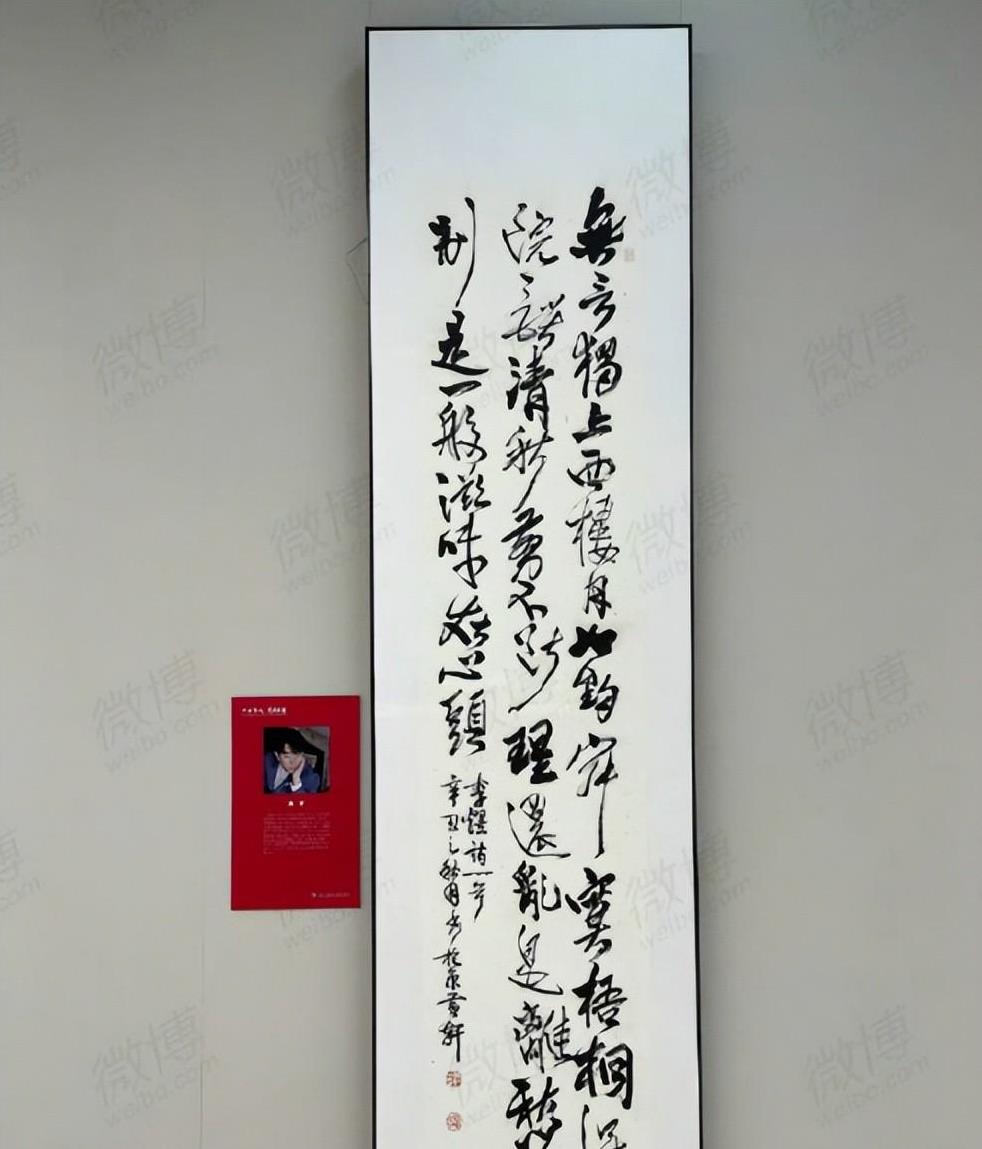 無言獨上西樓月如鉤寂寞梧桐深
院鎖清秋剪不斷理還亂是離愁
別是一般滋味在心頭
李煜詩一首
辛丑之秋月書於京黃軒
微博
weibo.com